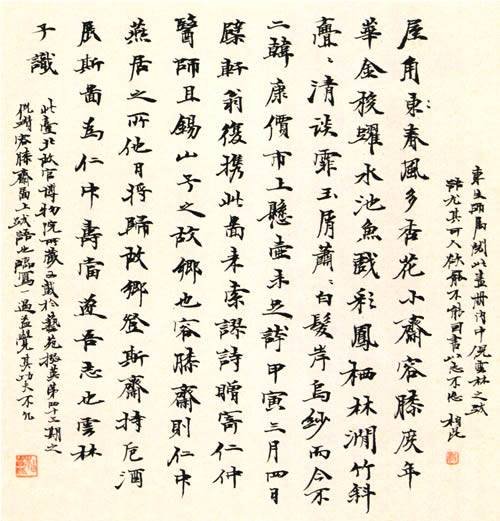 東生所屬閱此畫冊詩中倪雲林之跋
尤其可人欲不能書以志不忘
屋角東春風多杏花小齋容膝度年
華金梭躍水池魚戲彩鳳栖林澗竹斜
亹〻清談霏玉屑蕭〻白髮岸烏紗而今不
二韓康價市上懸壺未足誇甲寅三月四日
檗軒翁復攜此啚来索謬詩贈寄仁仲
醫師且錫山予之故鄉也容膝齋則仁中
燕居之所他日將歸故鄉登斯齋持卮酒
展斯啚為仁中壽當遂吾志也雲林
子識
此臺北故宮博物院所藏又載於藝苑掇英第四十三期之
倪瓚容膝齋啚上跋語也臨寫一過益覺其功夫不凡